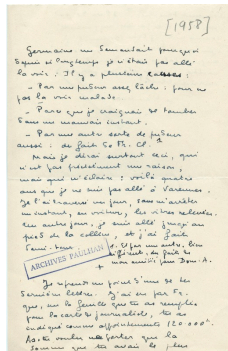 [1958]
Germaine me demandait pourquoi
depuis si longtemps je n'étais pas allé
la voir. Il y a plusieurs causes :
- Par une pudeur assez lâche : pour ne
pas la voir malade.
- Parce que je craignais de tomber
dans un mauvais instant.
- Par une autre sorte de pudeur
aussi : de fait
Mais je dirai surtout ceci, qui
n'est pas précisément une raison,
mais qui m'éclaire : voilà quatre
ans que je ne suis pas allé à Varennes.
Je l'ai traversé un jour, sans m'arrêter
un instant, en voiture, les vitres relevées.
Un autre jour, je suis allé jusqu'au
pied de la colline, et j'ai fait
demi-tour.
ARCHIVES PAULHAN
+
Je réponds au point d'une de tes
dernières lettres. J'ai en fait
que, sur la feuille que tu as remplie
pour la carte de journaliste, tu as
indiqué comme appointements 120.000
As-tu voulu
somme que tu avais le plus